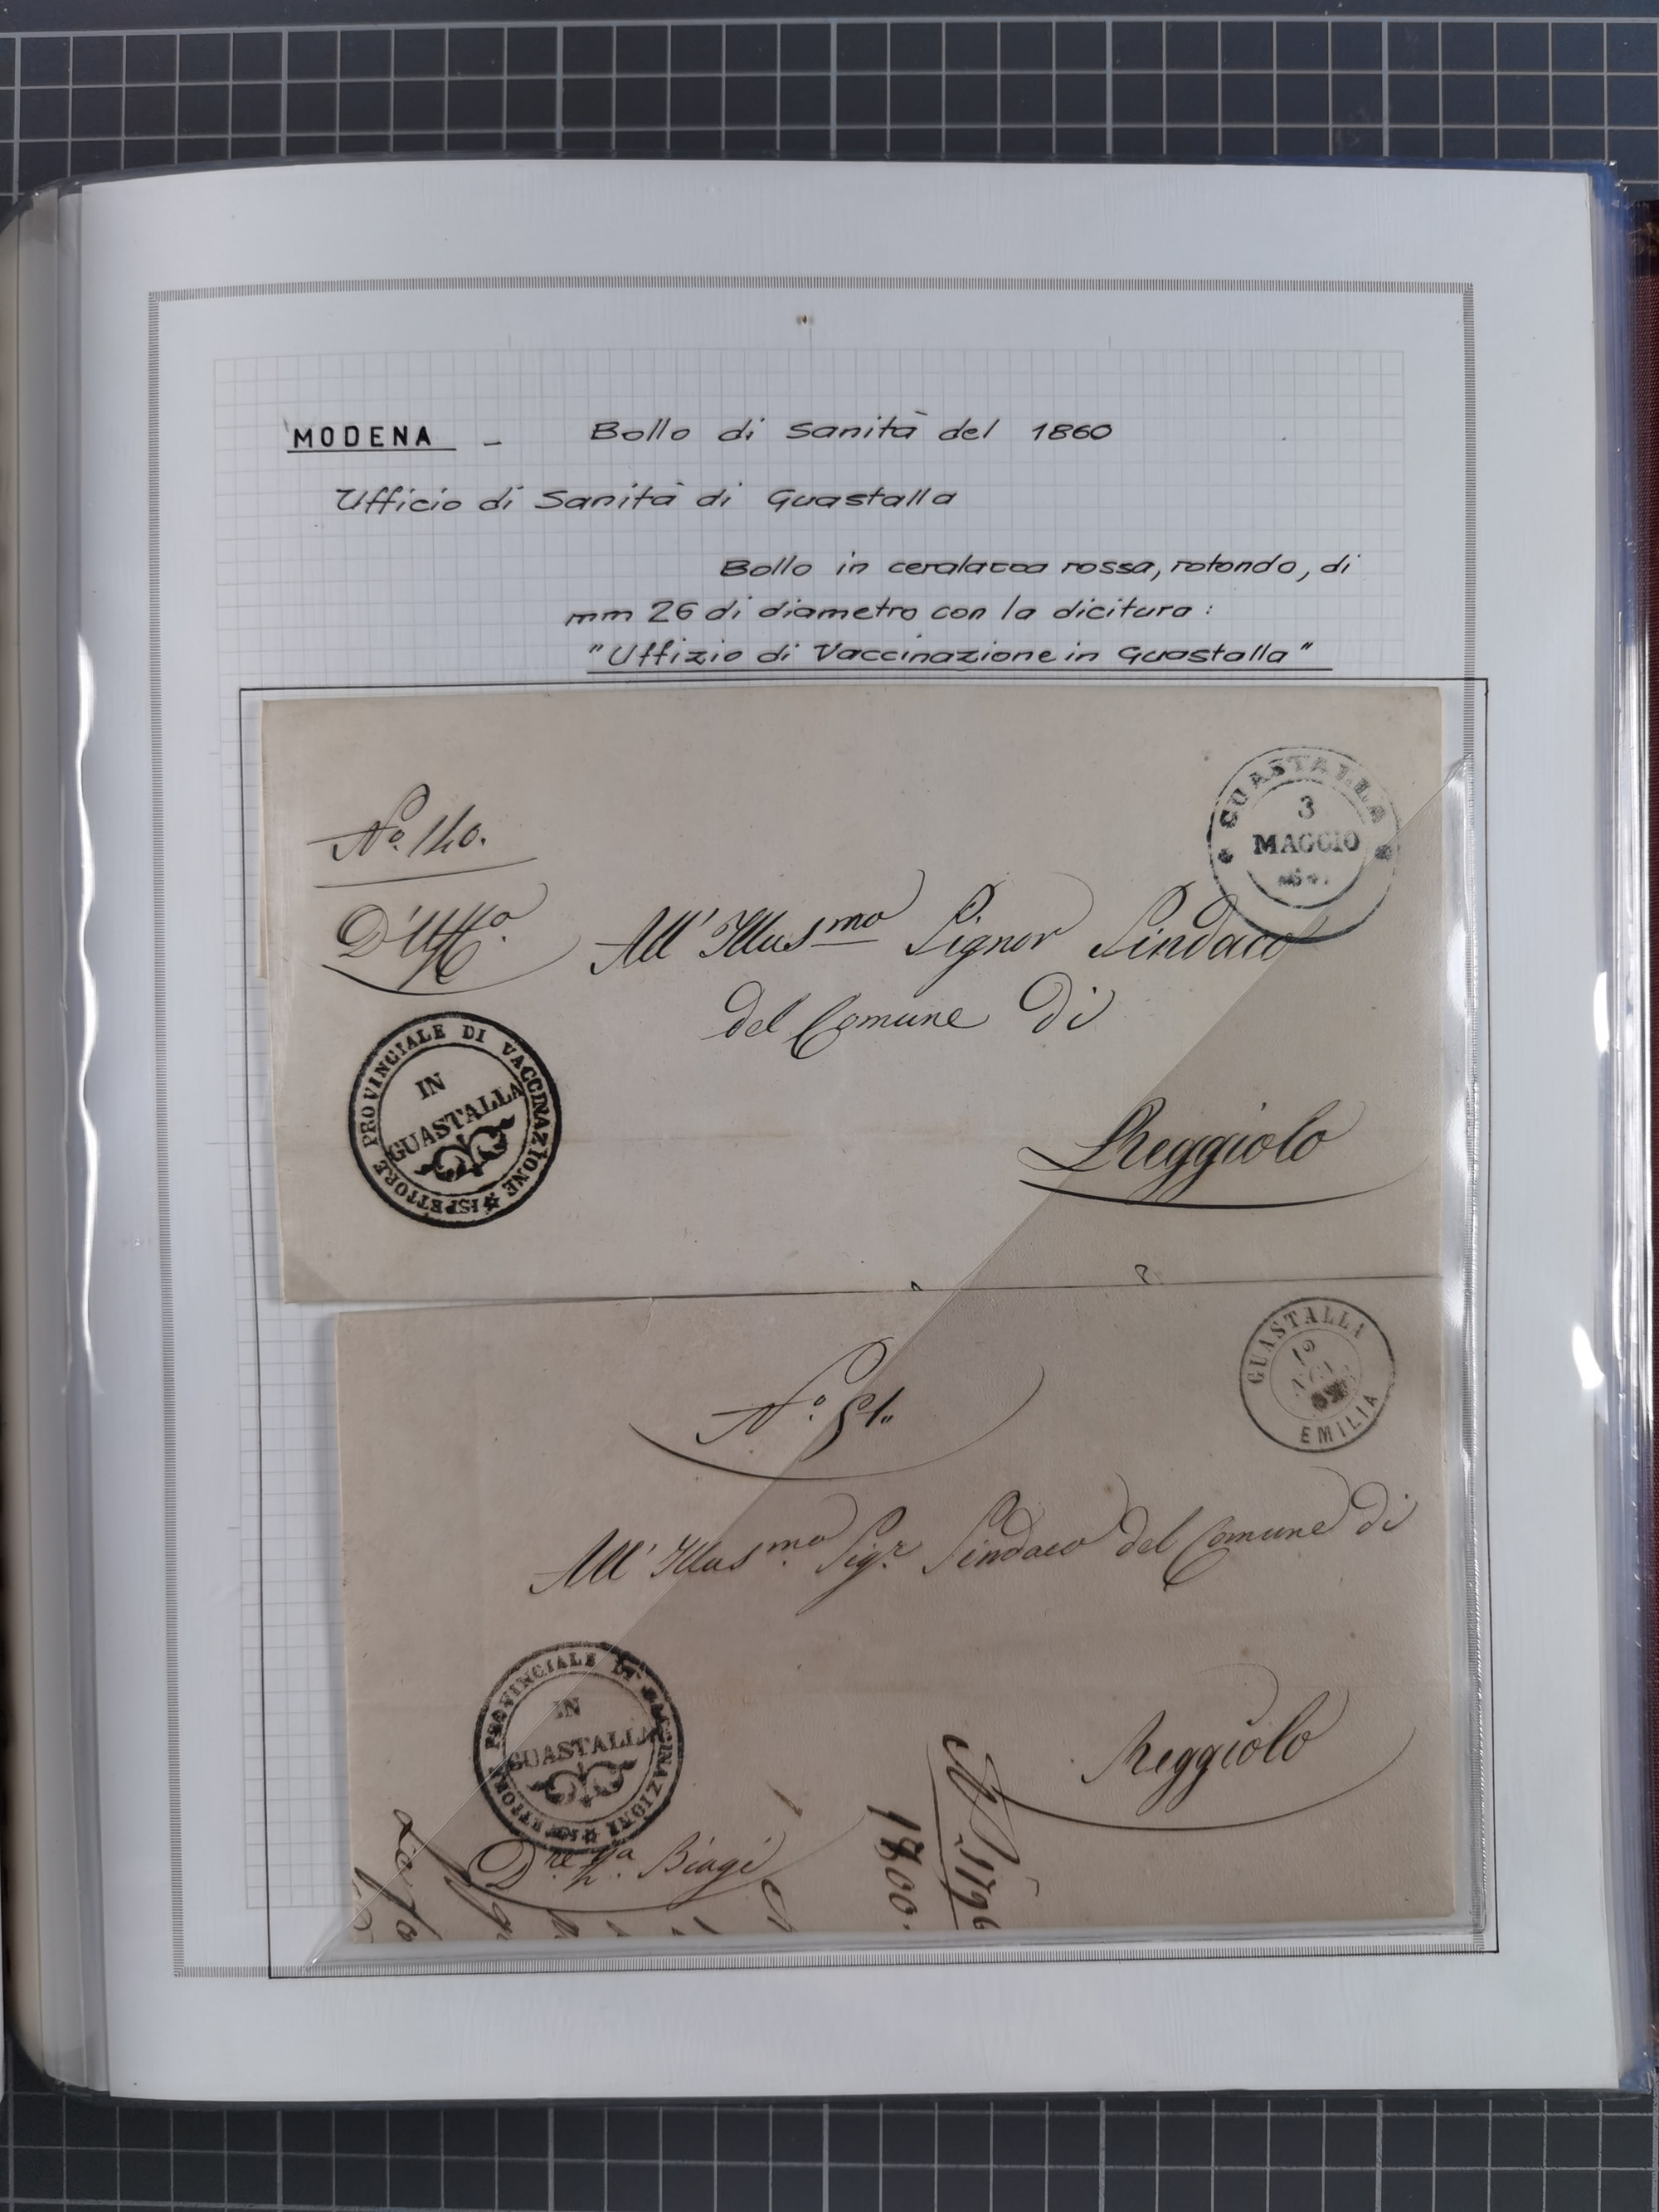 MODENA - Bollo di Sanità del 1860
Ufficio di Sanità di Guastalla
Bollo in ceralacca rossa, rotondo, di
mm 26 di diametro con la dicitura:
"Uffizio di Vaccinazione in Guastalla"
GUASTALLA
3
MAGGIO
No. 140.
D'Uffo.
All' Illusmo Signor Sindaco
del Comune di
Reggiolo
ISPETTORE PROVINCIALE DI VACCINAZIONE
IN
GUASTALLA
GUASTALLA
12
EMILIA
No. 51.
All' Illusmo. Sigr. Sindaco del Comune di
Reggiolo
ISPETTORE PROVINCIALE DI VACCINAZIONE
IN
GUASTALLA
Biagi